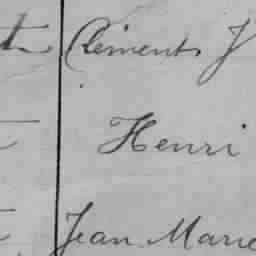 Clements J
Henri
Jean Marie